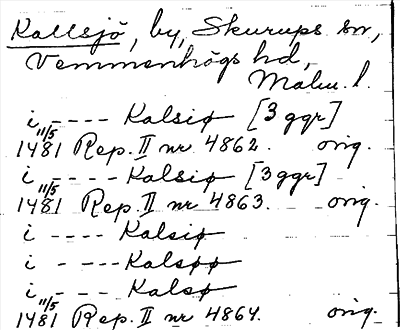 Kallsjö, by, Skurups sn,
Vemmenhögs hd,
Malm. l.
i ---- Kalsiø [3 ggr]
1481 11/5 Rep. II nr 4862. orig.
i ---- Kalsiø [3 ggr]
1481 11/5 Rep. II nr 4863. orig.
i ---- Kalsiø
i ---- Kalsøø
i ---- Kalsø
1481 11/5 Rep. II nr 4864. orig.